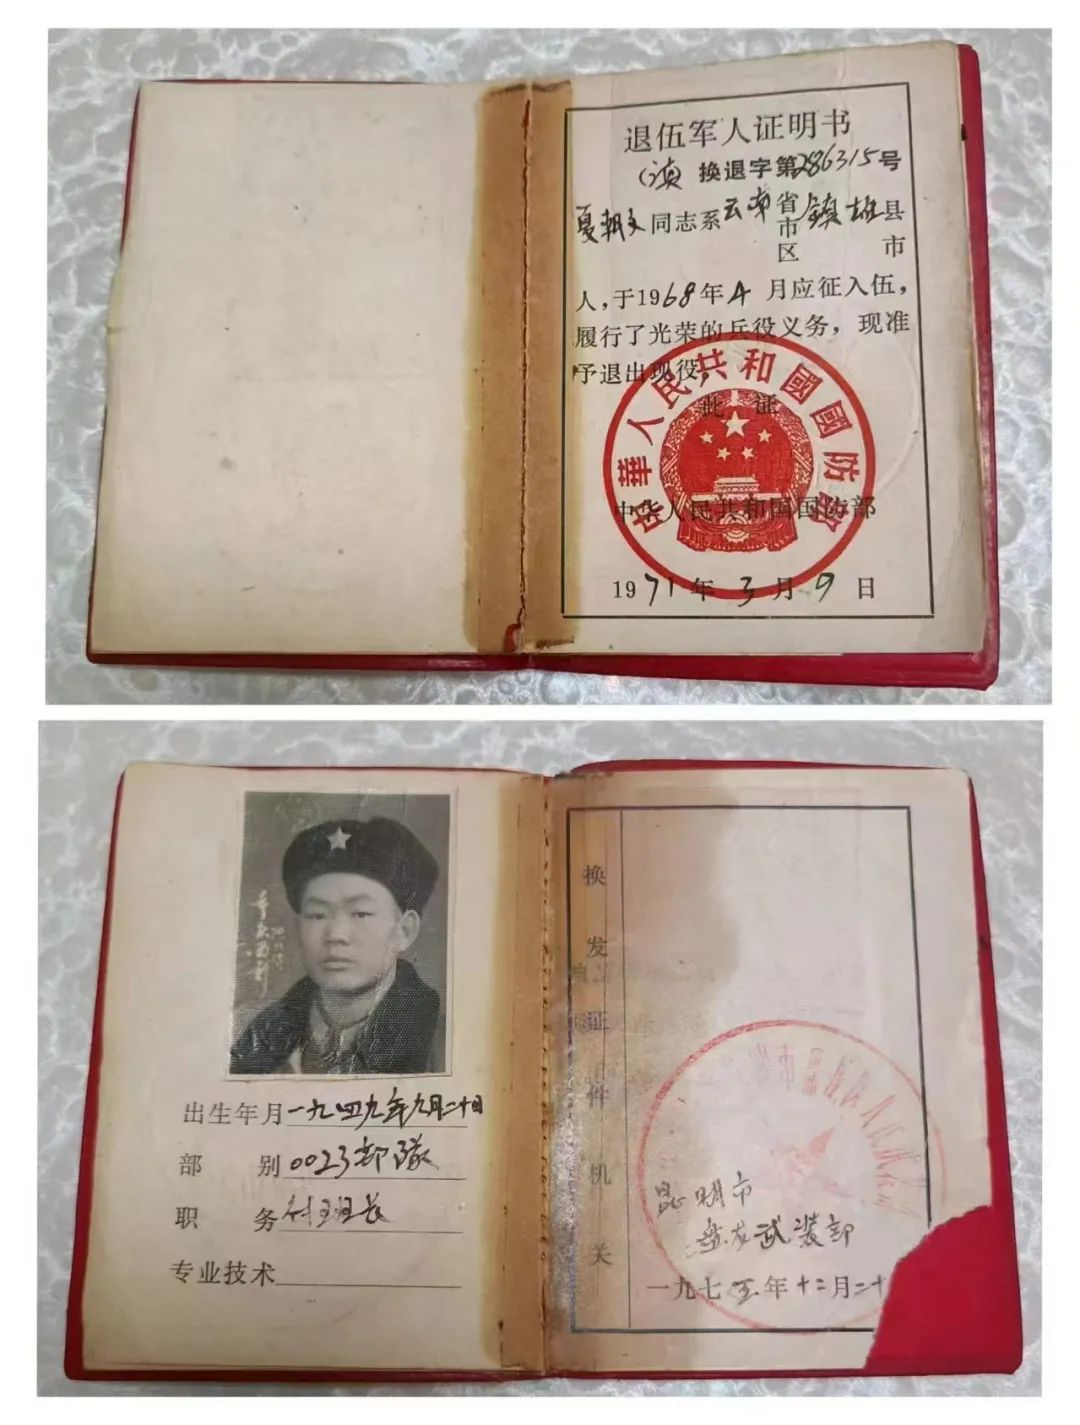 退伍军人证明书
(滇 换退字第286315号
夏朝文同志系云南省市区镇雄县市
人,于1968年4月应征入伍,
履行了光荣的兵役义务,现准
予退出现役。
此证
中华人民共和国国防部
中華人民共和國國防部
1971年3月9日
出生年月一九四九年九月二十日
部别0023部隊
职务付班长
专业技术
换发证件机关
昆明市
盘龙武装部
一九七五年十二月二十